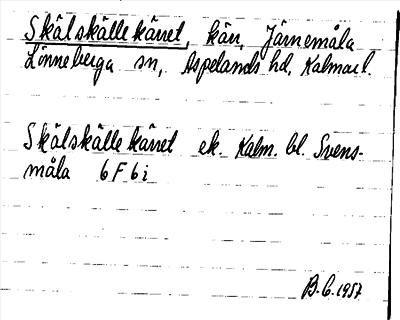 Skälskällekärret, kärr, Järnemåla
Lönneberga sn, Aspelands hd, Kalmar l.
Skälskällekärret ek. Kalm. bl. Svens-
måla 6F6i
B.C. 1957